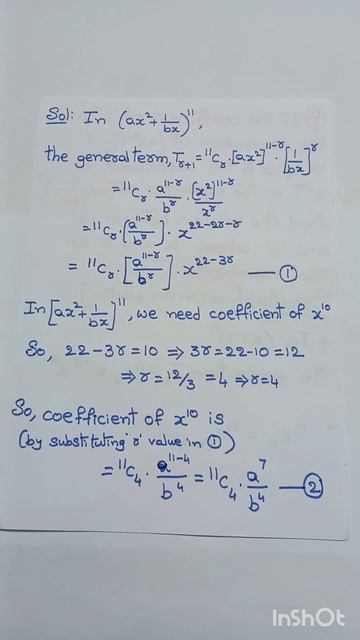 Sol: In (ax² + 1/bx)¹¹,
the general term, Tᵣ₊₁ = ¹¹Cᵣ · [ax²]¹¹⁻ʳ · [1/bx]ʳ
= ¹¹Cᵣ · a¹¹⁻ʳ/bʳ · [x²]¹¹⁻ʳ/xʳ
= ¹¹Cᵣ · [a¹¹⁻ʳ/bʳ] · x²²⁻²ʳ⁻ʳ
= ¹¹Cᵣ · [a¹¹⁻ʳ/bʳ] · x²²⁻³ʳ — ①
In [ax² + 1/bx]¹¹, we need coefficient of x¹⁰
So, 22-3r = 10 ⇒ 3r = 22-10 = 12
⇒ r = 12/3 = 4 ⇒ r = 4
So, coefficient of x¹⁰ is
(by substituting 'r' value in ①)
= ¹¹C₄ · a¹¹⁻⁴/b⁴ = ¹¹C₄ · a⁷/b⁴ — ②
InShOt